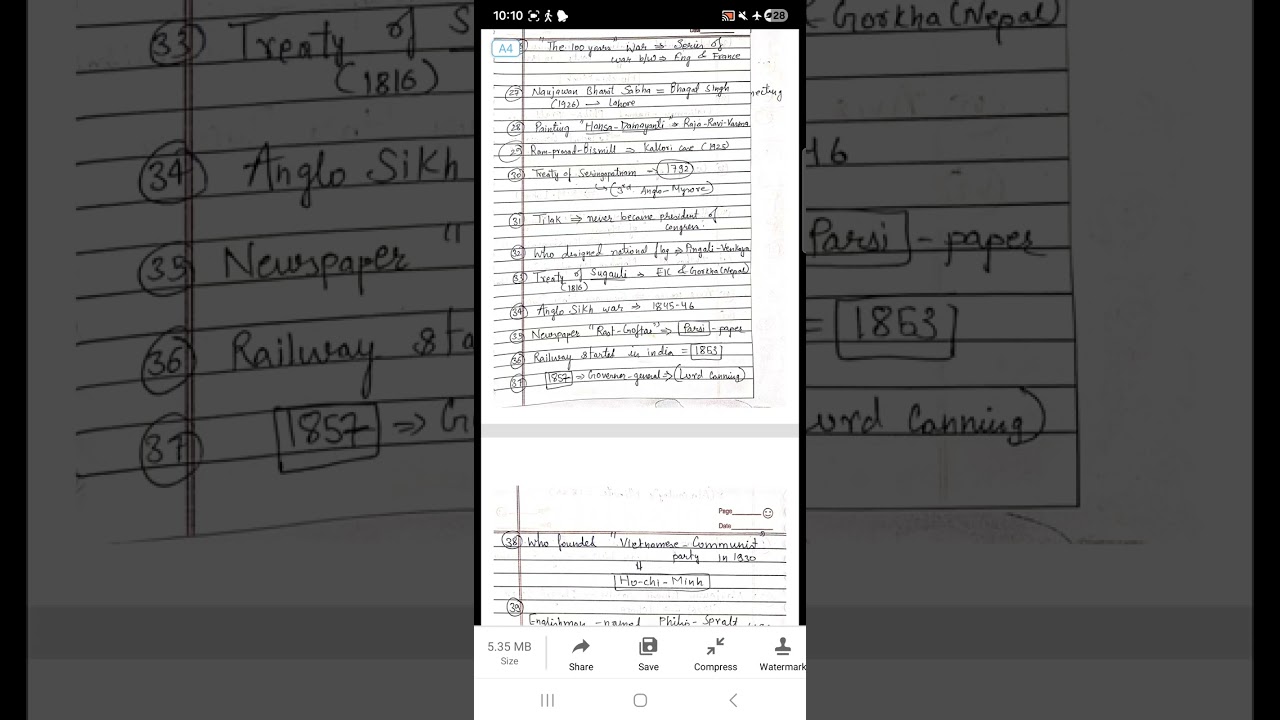 10:10
28
A4
"The 100 years" War ⇒ Series of
war b/w ⇒ Eng & France
27 Naujawan Bharat Sabha = Bhagat Singh
(1926) → Lahore
28 Painting "Hansa-Damayanti" ⇒ Raja-Ravi-Varma
29 Ram-prasad-Bismill ⇒ Kakori case (1925)
30 Treaty of Seringapatnam → 1792
↳ (3rd Anglo-Mysore)
31 Tilak ⇒ never became president of
congress.
32 Who designed national flag ⇒ Pingali-Venkaya
33 Treaty of Sugauli ⇒ EIC & Gorkha (Nepal)
(1816)
34 Anglo Sikh war → 1845-46
35 Newspaper "Rast-Goftar" ⇒ Parsi - paper
36 Railway started in india = 1853
37 1857 ⇒ Governor-general ⇒ (Lord Canning)
Page
Date
38 Who founded "Vietnamese-Communist"
party in 1930
⇓
Ho-chi-Minh
39
Englishman -named Philip- Spratt
5.35 MB
Size
Share
Save
Compress
Watermark
33 Treaty of S
(1816)
34 Anglo Sikh
35 Newspaper "
36 Railway sta
37 1857 ⇒ G
Gorkha (Nepal)
necting
46
Parsi - paper
= 1853
Lord Canning)